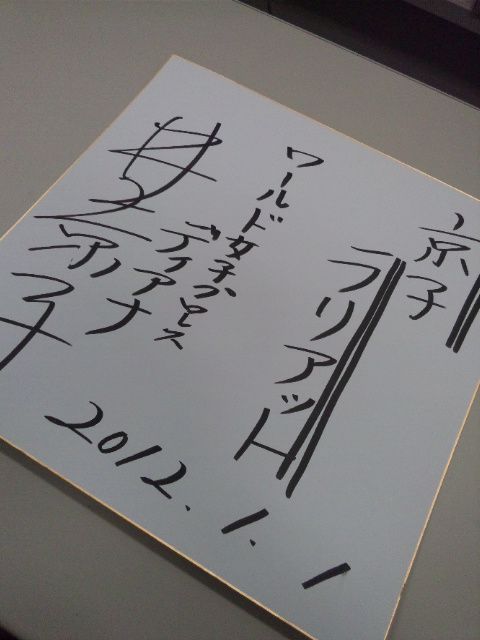 京子
ラリアット
ワールド女子プロレス
ディアナ
井上京子
2012.1.1